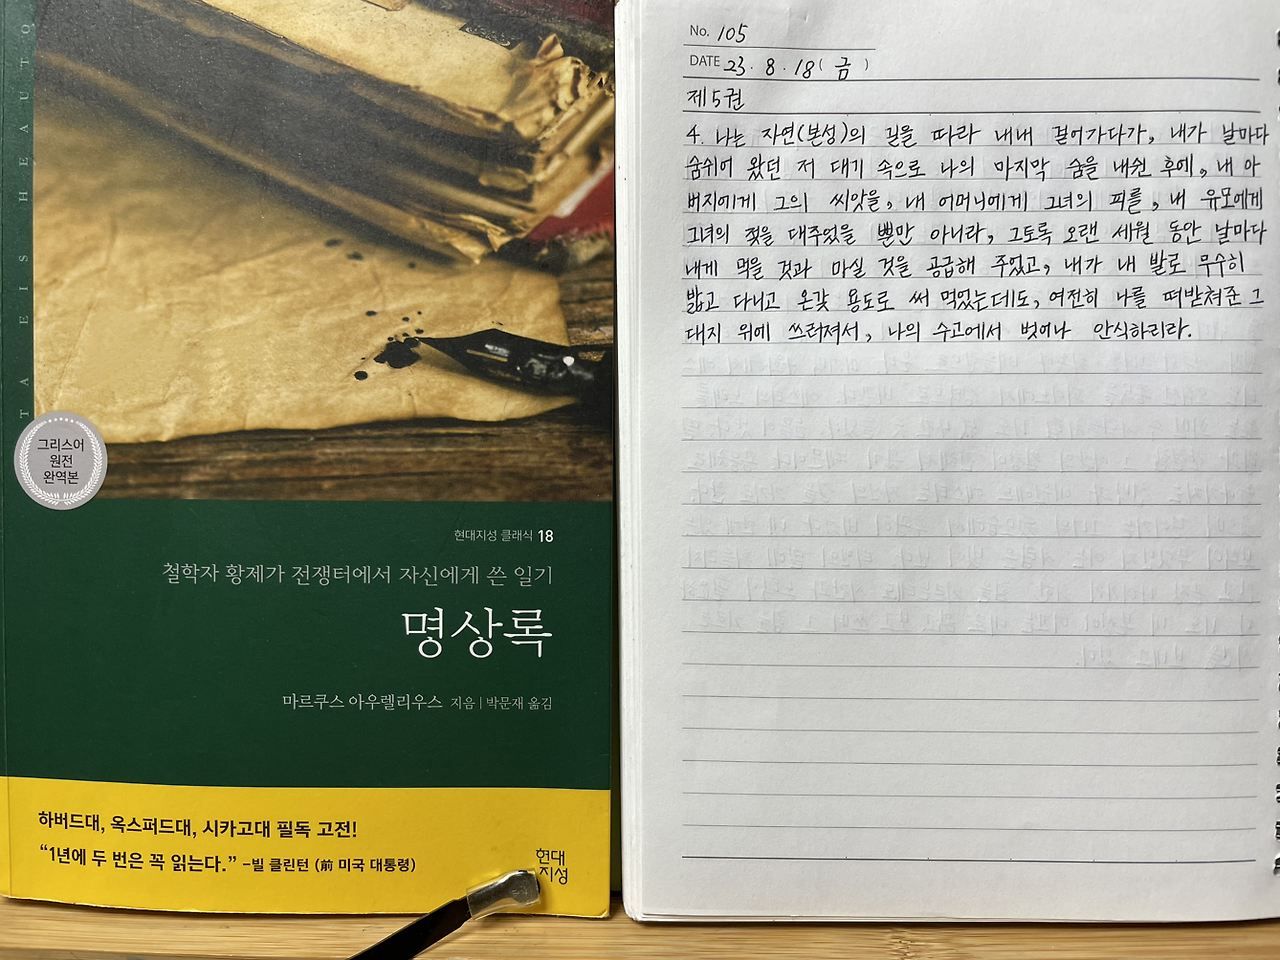 TA EIS HEAUTO
그리스어
원전
완역본
현대지성 클래식 18
철학자 황제가 전쟁터에서 자신에게 쓴 일기
명상록
마르쿠스 아우렐리우스 지음 | 박문재 옮김
하버드대, 옥스퍼드대, 시카고대 필독 고전!
“1년에 두 번은 꼭 읽는다.” –빌 클린턴 (前 미국 대통령)
현대
지성
No. 105
DATE 23. 8. 18 ( 금 )
제5권
4. 나는 자연(본성)의 길을 따라 내내 걸어가다가, 내가 날마다
숨쉬어 왔던 저 대기 속으로 나의 마지막 숨을 내쉰 후에, 내 아
버지에게 그의 씨앗을, 내 어머니에게 그녀의 피를, 내 유모에게
그녀의 젖을 대주었을 뿐만 아니라, 그토록 오랜 세월 동안 날마다
내게 먹을 것과 마실 것을 공급해 주었고, 내가 내 발로 무수히
밟고 다니고 온갖 용도로 써 먹었는데도, 여전히 나를 떠받쳐준 그
대지 위에 쓰러져서, 나의 수고에서 벗어나 안식하리라.